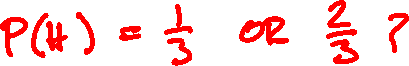 P(H) = 1/3 OR 2/3 ?